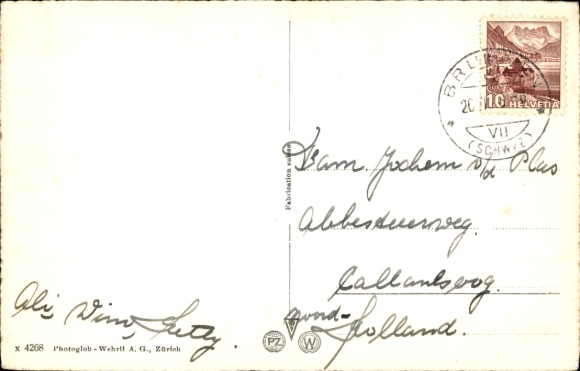 BRUNNEN
26.
VII
(SCHWYZ)
10 HELVETIA
Fam. Jochem v/d Plas
Abbestuerweg.
Callantsoog.
Noord-
Holland.
Ali, Wim, Jetty.
Fabrication suisse
X 4268 Photoglob-Wehrli A. G., Zürich
PZ W